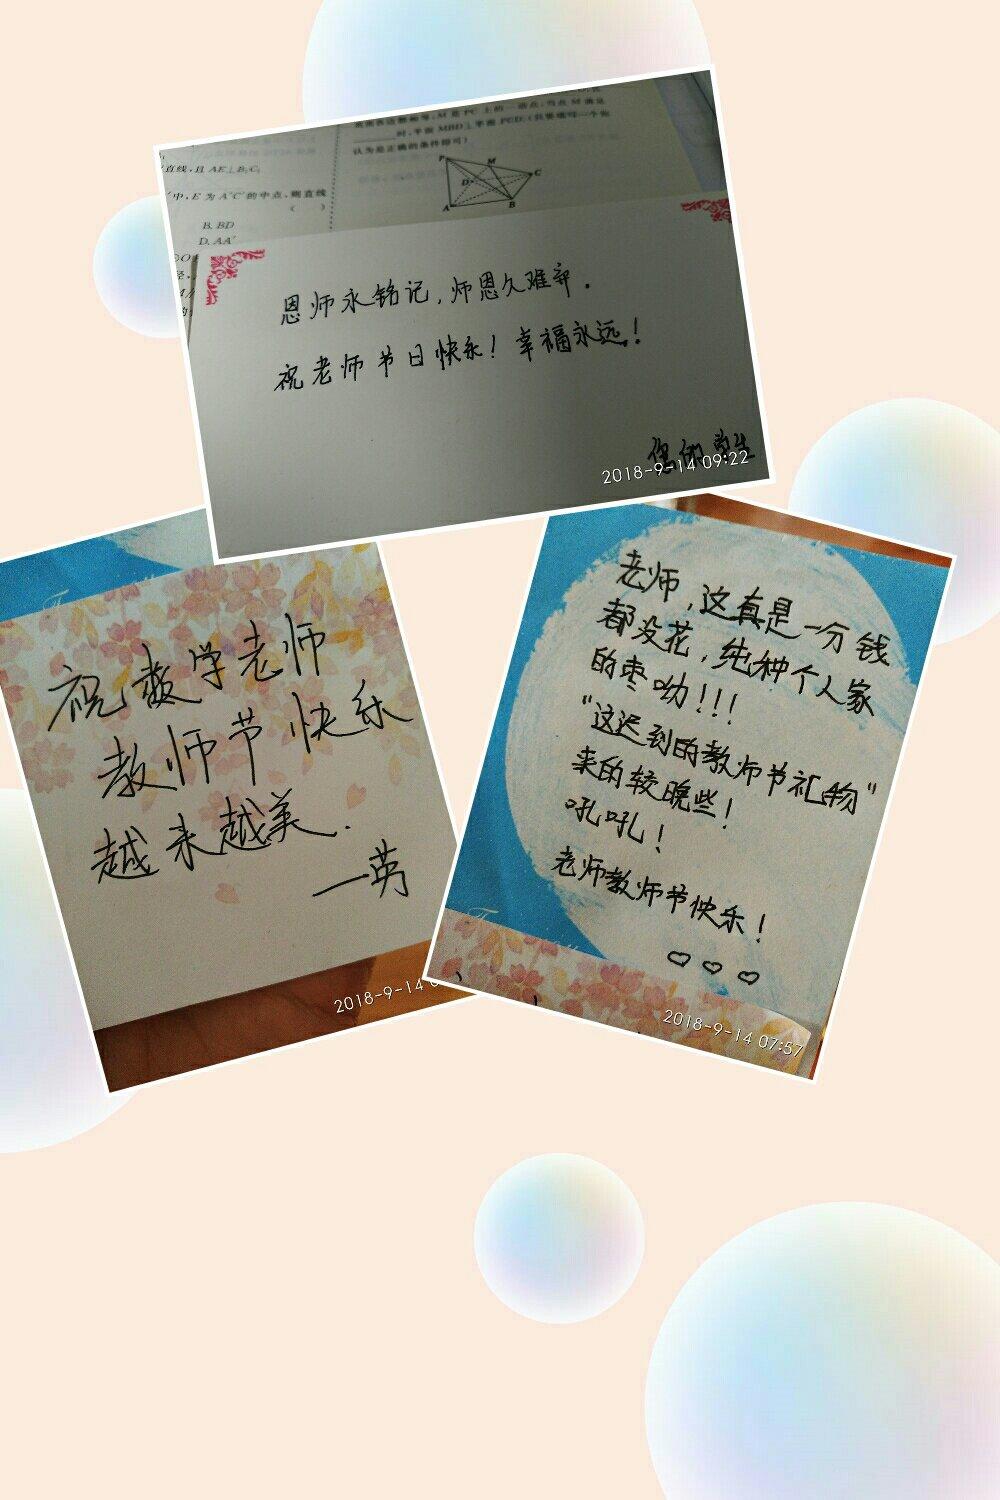 底面各边都相等,M是PC上的一动点,当点M满足
时,平面MBD⊥平面PCD.(只要填写一个你
认为是正确的条件即可)
直线,且AE⊥B₁C₁
中,E为A'C'的中点,则直线
( )
B. BD
D. AA'
P
M
D
C
A
B
恩师永铭记,师恩久难辞.
祝老师节日快乐!幸福永远!
您的学生
2018-9-14 09:22
祝数学老师
教师节快乐
越来越美.
一英
2018-9-14
老师,这真是一分钱
都没花,纯种个人家
的枣呦!!!
"这迟到的教师节礼物"
来的较晚些!
吼吼!
老师教师节快乐!
2018-9-14 07:57